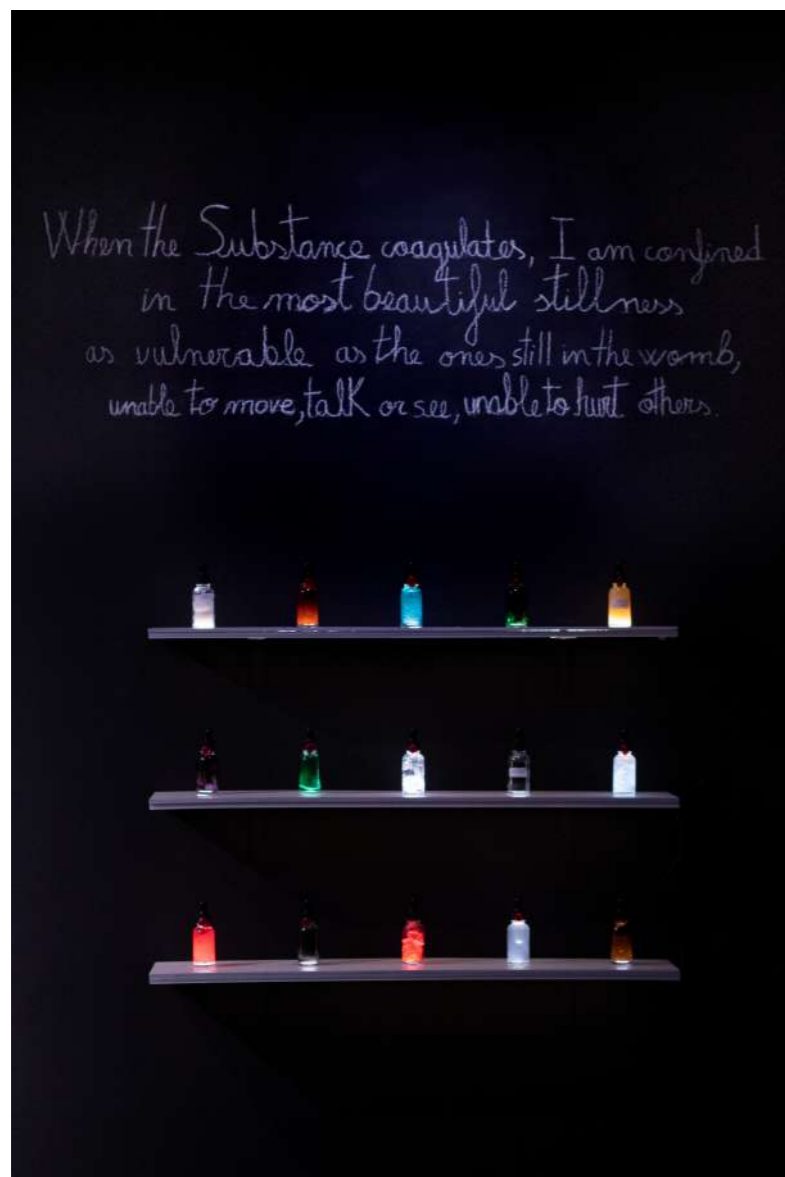 When the Substance coagulates, I am confined
in the most beautiful stillness
as vulnerable as the ones still in the womb,
unable to move, talk or see, unable to hurt others.